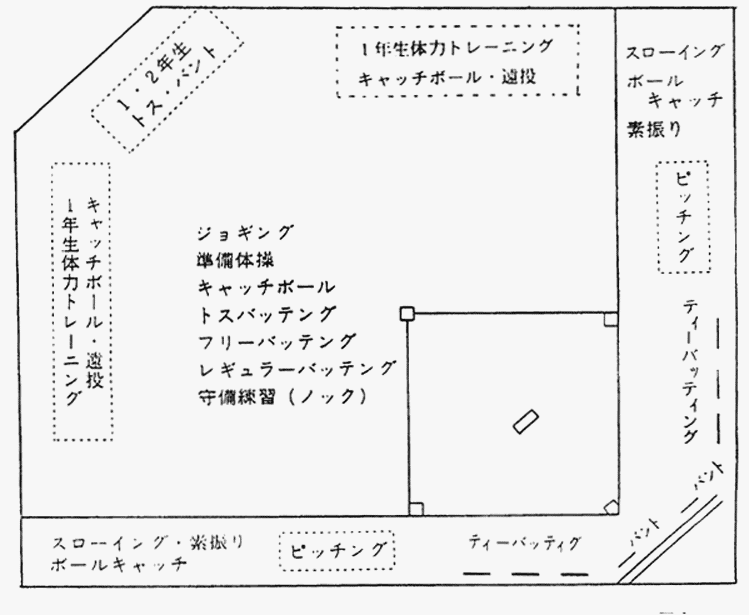 1・2年生
トス・バント
1年生体力トレーニング
キャッチボール・遠投
スローイング
ボール
キャッチ
素振り
ピッチング
キャッチボール・遠投
1年生体力トレーニング
ジョギング
準備体操
キャッチボール
トスバッテング
フリーバッテング
レギュラーバッテング
守備練習(ノック)
ティーバッティング
バント
バント
スローイング・素振り
ボールキャッチ
ピッチング
ティーバッティグ